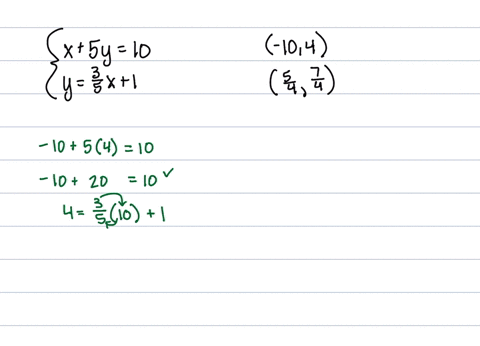 { x + 5y = 10 (-10, 4)
y = 3/5 x + 1 (5/4, 7/4)
-10 + 5(4) = 10
-10 + 20 = 10 ✓
4 = 3/5 (10) + 1